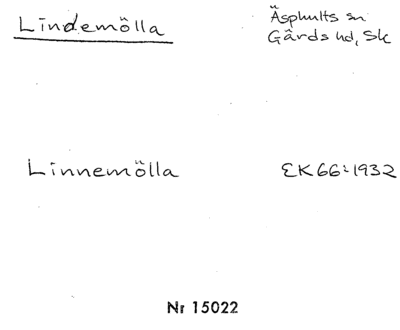 Lindemölla
Äsphults sn
Gärds hd, Sk
Linnemölla
EK66:1932
Nr 15022